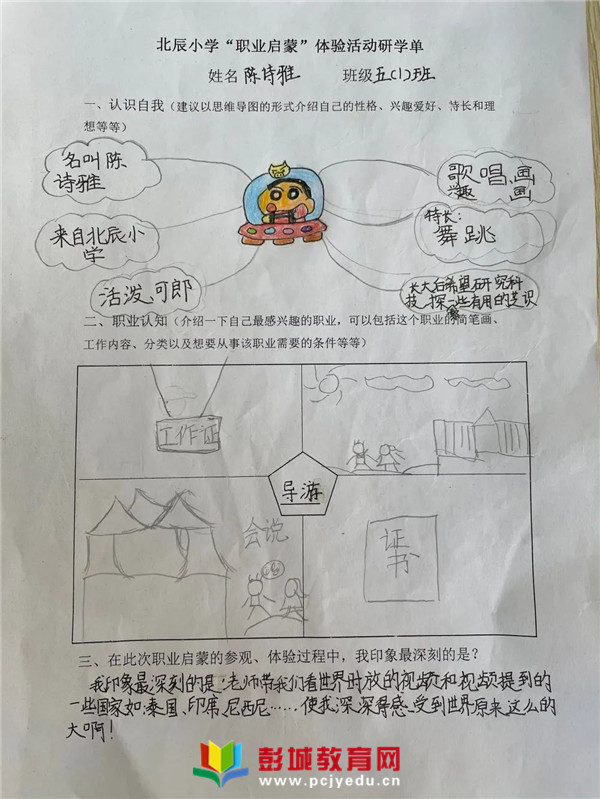 北辰小学“职业启蒙”体验活动研学单
姓名 陈诗雅 班级 五(1)班
一、认识自我（建议以思维导图的形式介绍自己的性格、兴趣爱好、特长和理
想等等）
名叫陈
诗雅
来自北辰小
学
活泼可郎
歌唱、画
兴趣 画
特长：
舞跳
长大后希望研究科
技，探一些有用的
二、职业认知（介绍一下自己最感兴趣的职业，可以包括这个职业的简笔画、
工作内容、分类以及想要从事该职业需要的条件等等）
工作证
导游
会说
证
书
三、在此次职业启蒙的参观、体验过程中，我印象最深刻的是？
我印象最深刻的是老师带我们看世界时放的视频和视频提到的
一些国家如：泰国、印度、尼西尼……使我深深得感受到世界原来这么的
大啊！
彭城教育网
www.pcjyedu.cn